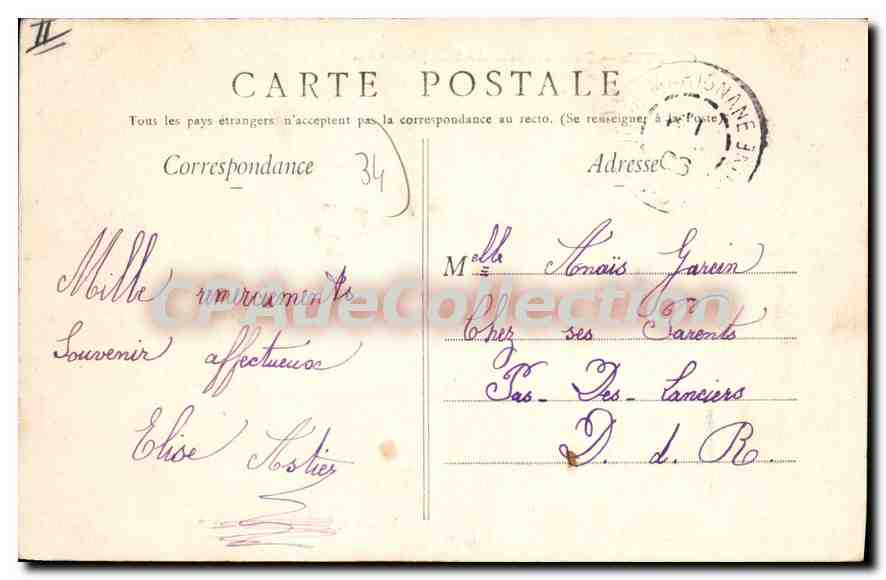 II
CARTE POSTALE
Tous les pays étrangers n'acceptent pas la correspondance au recto. (Se renseigner à la Poste)
Correspondance
34
Mille remerciements
Souvenir affectueux
Elise Astier
Adresse
MARIGNANE
Melle Anaïs Garcin
Chez ses Parents
Pas-Des-Lanciers
B. d. R.
CPAdeCollection